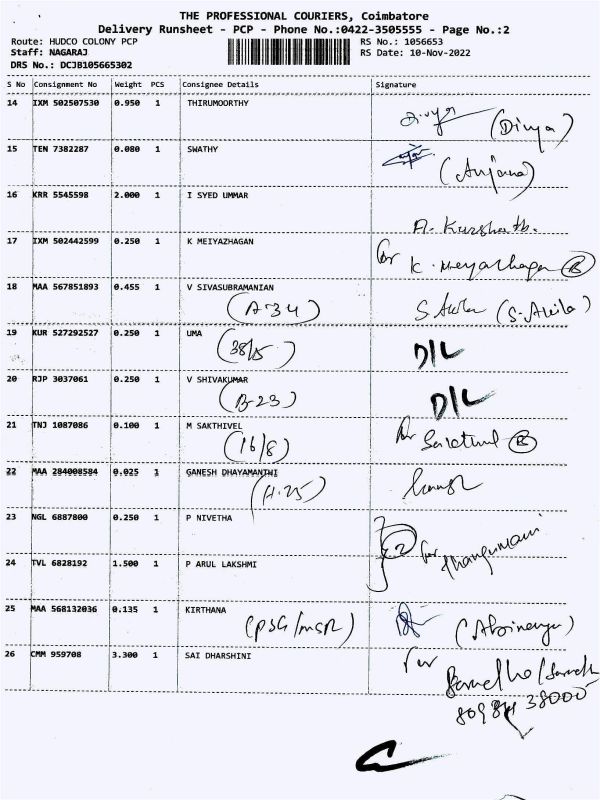 THE PROFESSIONAL COURIERS, Coimbatore
Delivery Runsheet - PCP - Phone No.:0422-3505555 - Page No.:2
Route: HUDCO COLONY PCP RS No.: 1056653
Staff: NAGARAJ RS Date: 10-Nov-2022
DRS No.: DCJB105665302
S No Consignment No Weight PCS Consignee Details Signature
14 IXM 502507530 0.950 1 THIRUMOORTHY
Divya (Divya)
15 TEN 7382287 0.080 1 SWATHY
(Anjana)
16 KRR 5545598 2.000 1 I SYED UMMAR
A. Kurshath.
17 IXM 502442599 0.250 1 K MEIYAZHAGAN
for K. Meyazhagan B
18 MAA 567851893 0.455 1 V SIVASUBRAMANIAN
(A-34) (S. Akila)
19 KUR 527292527 0.250 1 UMA
(38/15) D/L
20 RJP 3037061 0.250 1 V SHIVAKUMAR
(B-23) D/L
21 TNJ 1087086 0.100 1 M SAKTHIVEL
(16/8) for B
22 MAA 284008584 0.025 1 GANESH DHAYAMANTHI
(H.25)
23 NGL 6887800 0.250 1 P NIVETHA
2 for thangamani
24 TVL 6828192 1.500 1 P ARUL LAKSHMI
25 MAA 568132036 0.135 1 KIRTHANA
(PSG/MSR) (Abinaya)
26 CMM 959708 3.300 1 SAI DHARSHINI
for